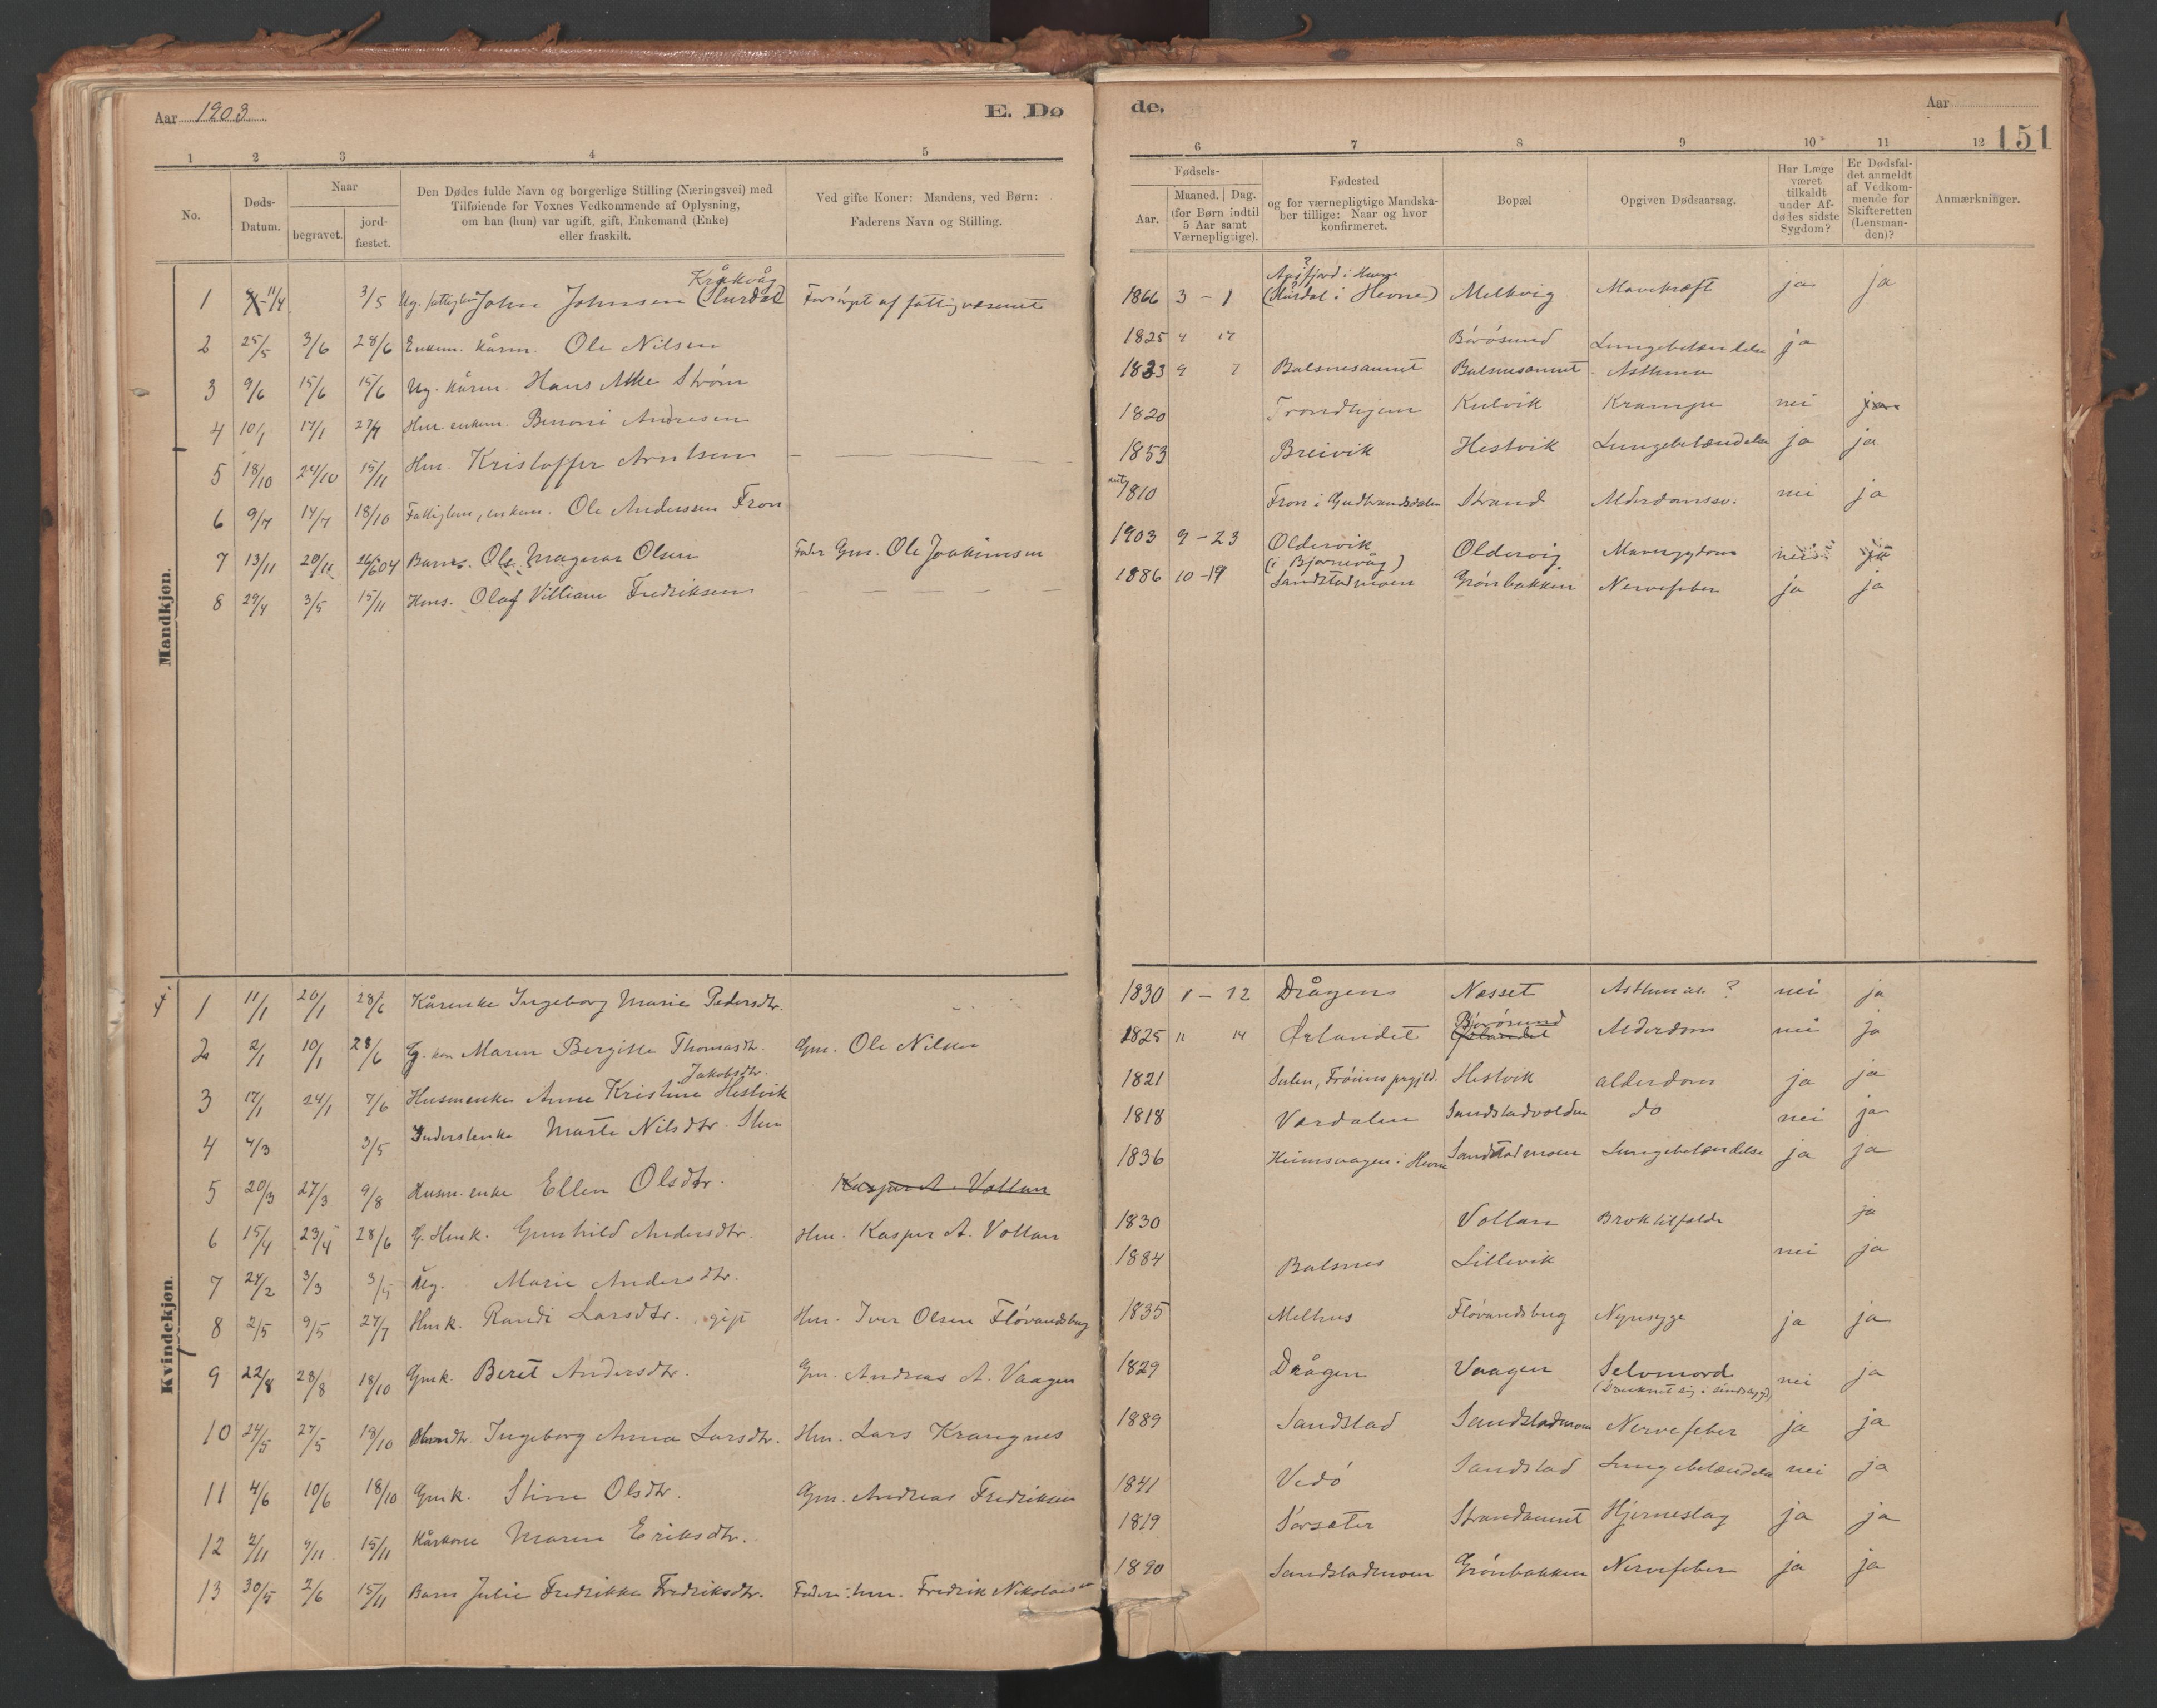 Aar 1903 E. Dø
1 2 3 4 5
No. Døds-Datum. Naar begravet. jord-fæstet. Den Dødes fulde Navn og borgerlige Stilling (Næringsvei) med Tilføiende for Voxnes Vedkommende af Oplysning, om han (hun) var ugift, gift, Enkemand (Enke) eller fraskilt. Ved gifte Koner: Mandens, ved Børn: Faderens Navn og Stilling.
Mandkjøn.
Kråkvåg
1 11/4 3/5 Ug. fattiglem John Johnsen (Slurdal) Forsørget af fattigvæsenet
2 25/5 3/6 28/6 Enkem. kårm. Ole Nilsen
3 9/6 15/6 15/6 Ug. kårm. Hans Atke Strøm
4 10/1 17/1 27/7 Hm. enkem. Benoni Andresen
5 18/10 24/10 15/11 Hm. Kristoffer Arntsen
6 9/7 14/7 18/10 Fattiglem, enkem. Ole Anderssen Fron
7 13/11 20/11 26/6 04 Barn Ole Magnar Olsen Fader Gm. Ole Joakimsen
8 29/4 3/5 15/11 Hms. Olaf Villiam Fredriksen
Kvindekjøn.
1 11/1 20/1 28/6 Kårenke Ingeborg Marie Pedersdtr.
2 2/1 10/1 28/6 G. kon Maren Bergitte Thomasdtr. Gm. Ole Nilsen
Jakobsdtr.
3 17/1 24/1 7/6 Husmenke Anne Kristine Hestvik
4 4/3 3/5 Inderstenke Marte Nilsdtr. Sten
5 20/3 27/3 9/8 Husm. enke Ellen Olsdtr. Kasper A. Vollan
6 15/4 23/4 28/6 G. Hmk. Gunhild Andersdtr. Hm. Kasper A. Vollan
7 24/2 3/3 3/5 Ug. Marie Andersdtr.
8 2/5 9/5 27/7 Hmk. Randi Larsdtr. gift Hm. Iver Olsen Fløvandsbug
9 22/8 28/8 18/10 Gmk. Beret Andersdtr. Gm. Andreas A. Vaagen
10 24/5 27/5 18/10 Ingeborg Anna Larsdtr. Hm. Lars Krangnes
11 4/6 10/6 18/10 Gmk. Stine Olsdtr. Gm. Andreas Fredriksen
12 2/11 9/11 15/11 Kårkone Maren Eriksdtr.
13 30/5 2/6 15/11 Barn Julie Fredrikke Fredriksdtr. Fader: hm. Fredrik Nikolaisen
de. Aar
151
6 7 8 9 10 11 12
Fødsels- Aar. Maaned. Dag. (for Børn indtil 5 Aar samt Værnepligtige). Fødested og for værnepligtige Mandskaber tillige: Naar og hvor konfirmeret. Bopæl Opgiven Dødsaarsag. Har Læge været tilkaldt under Afdødes sidste Sygdom? Er Dødsfaldet anmeldt af Vedkommende for Skifteretten (Lensmanden)? Anmærkninger.
?
1866 3 - 1 (Slurdal i Hevne) Melkvig Mavekræft ja ja
1825 4 17 Børøsund Lungebetændelse ja
1833 9 7 Balsnesaunet Balsnesaunet Asthma
1820 Trondhjem Kulvik Krampe nei ja
1853 Breivik Hestvik Lungebetændelse ja ja
1810 Fron i Gudbrandsdalen Strand Alderdomssv. nei ja
1903 9 - 23 Oldervik (i Bjørnevåg) Oldervig Mavesygdom nei ja
1886 10 - 19 Sandstadmoen Grønbakken Nervefeber ja ja
1830 1 - 12 Drågen Næsset Asthma ? nei ja
1825 11 14 Ørlandet Børøsund Ørlandet Alderdom nei ja
1821 Sulen, Frøiens prgjld. Hestvik alderdom ja ja
1818 Værdalen Sandstadvolden do nei ja
1836 Heimsvagen i Hevne Sandstadmoen Lungebetændelse ja ja
1830 Vollan Broktilfælde ja
1884 Balsnes Lillevik nei ja
1835 Melhus Fløvandsbug Nyresyge ja ja
1829 Drågen Vaagen Selvmord (Druknet sig i sindssygd) nei ja
1889 Sandstad Sandstadmoen Nervefeber ja ja
1841 Vedø Sandstad Lungebetændelse nei ja
1819 Sørsæter Strandaunet Hjerneslag ja ja
1890 Sandstadmoen Grønbakken Nervefeber ja ja